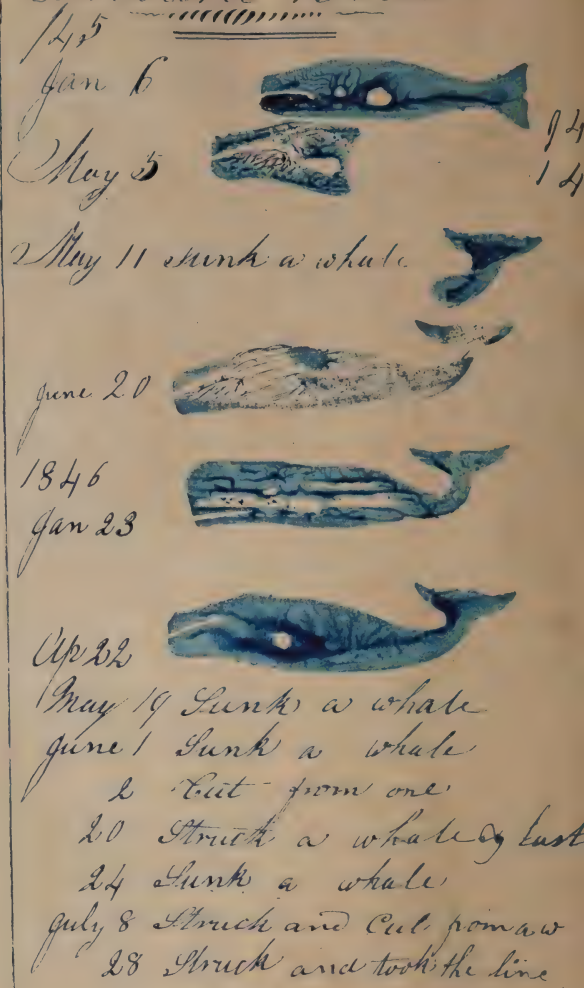 Jan 6
May 5
May 11 Sunk a whale
June 20
1846
Jan 23
Ap 22
May 19 Sunk a whale
June 1 Sunk a whale
2 Cut from one
20 Struck a whale &
24 Sunk a whale
July 8 Struck and Cut from a w
28 Struck and took the line